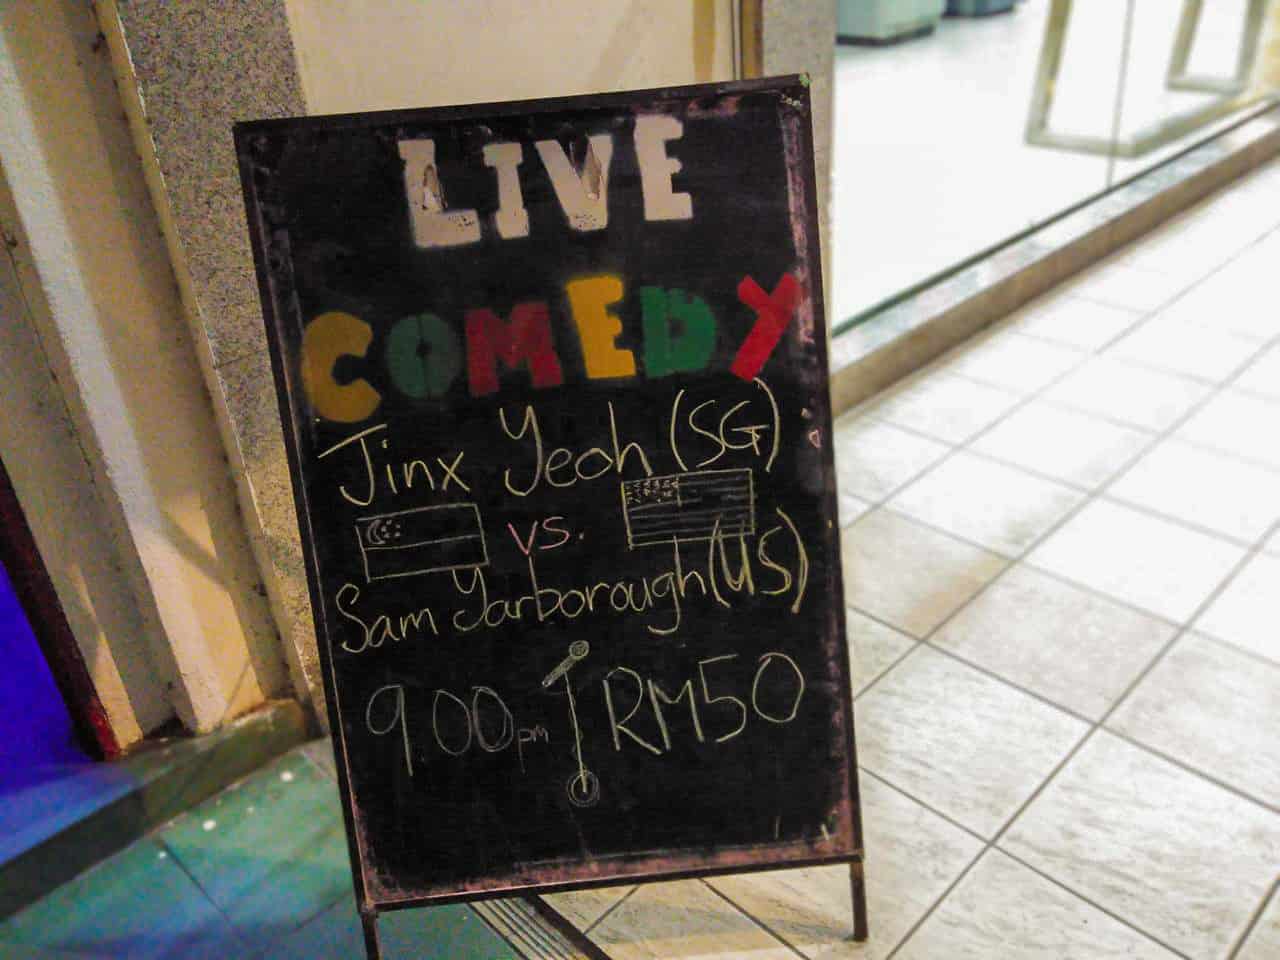 LIVE
COMEDY
Jinx Yeoh (SG)
vs.
Sam Yarborough (US)
9.00pm RM50